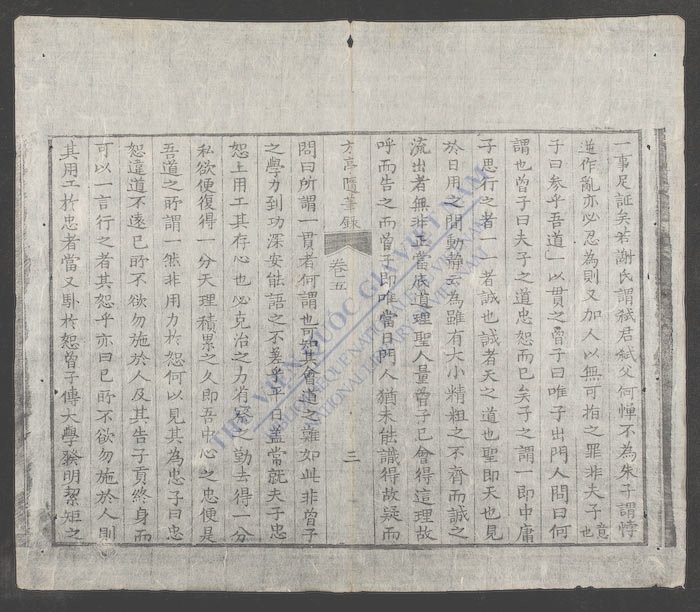 一事足証矣若謝氏謂弑君弑父何憚不為朱子謂悖
逆作亂亦必忍為則又加人以無可指之罪非夫子意也
子曰參乎吾道一以貫之曾子曰唯子出門人問曰何
謂也曾子曰夫子之道忠恕而已矣子之謂一即中庸
子思行之者一一者誠也誠者天之道也聖即天也見
於日用之間動靜云為雖有大小精粗之不齊而誠之
流出者無非正當底道理聖人量曾子已會得這理故
呼而告之而曾子即唯當日門人猶未能識得故疑而
方亭隨筆錄 卷五 三
問曰所謂一貫者何謂也可知其會道之難如此非曾子
之學力到功深安能語之不差乎平日盖當就夫子忠
恕上用工其存心也必克治之力省察之勤去得一分
私欲便復得一分天理積累之久即吾中心之忠便是
吾道之所謂一然非用力於恕何以見其為忠子曰忠
恕違道不遠己所不欲勿施於人及其告子貢終身而
可以一言行之者其恕乎亦曰己所不欲勿施於人則
其用工於忠者當又卧於恕曾子傳大學發明絜矩之
THƯ VIỆN QUỐC GIA VIỆT NAM
BIBLIOTHÈQUE NATIONALE DU VIETNAM
NATIONAL LIBRARY OF VIETNAM